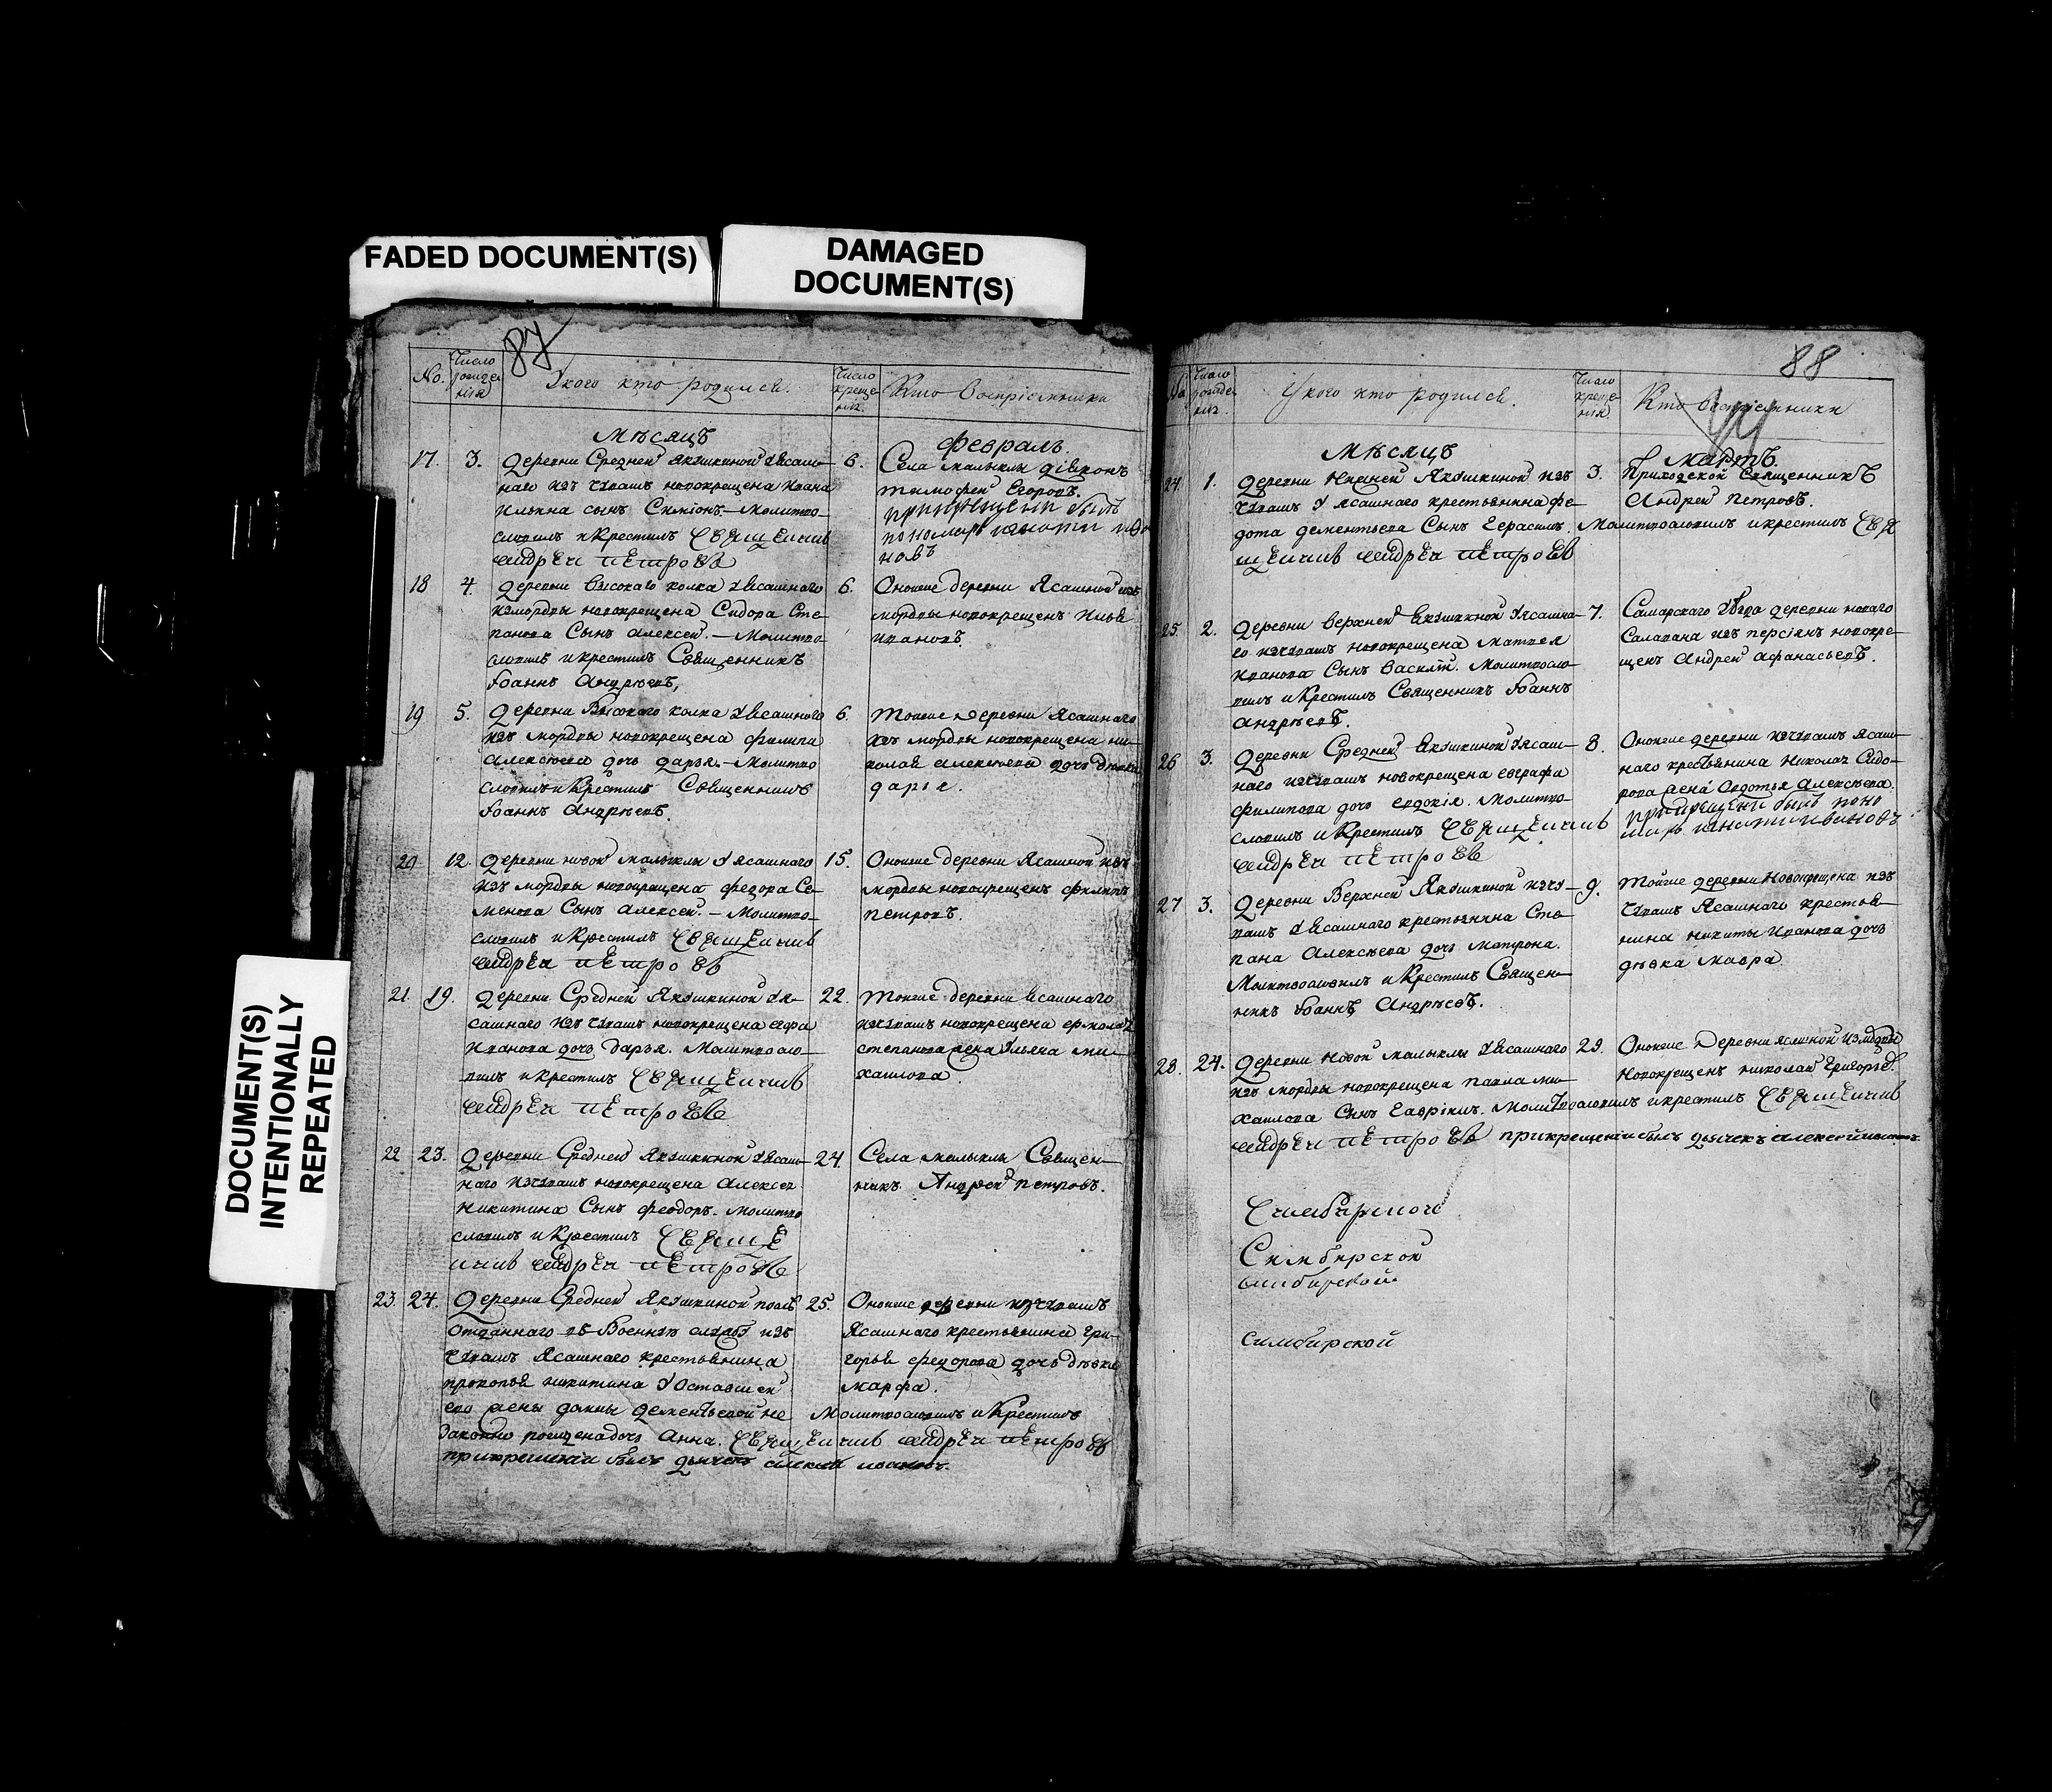 FADED DOCUMENT(S)
DAMAGED
DOCUMENT(S)
DOCUMENT(S)
INTENTIONALLY
REPEATED
87
No.
Число рожде нія
У кого кто родился.
Число креще нія.
Кто воспріемники
Мѣсяцъ
Февраль.
17. 3. Деревни Средней Якушкиной у ясаш-
наго изъ чувашъ новокрещена Ивана
Ильина сынъ Симіонъ. — Молитво-
словилъ и крестилъ Священникъ
Андрей Петровъ
6. Села Малыклы діяконъ
Тимофей Егоровъ.
при крещени былъ
пономарь Игнатий Ива
новъ
18 4. Деревни Высокаго колка у ясашнаго
из мордвы новокрещена Сидора Сте-
панова Сынъ Алексей. — Молитво
словилъ и крестилъ Священникъ
Іоаннъ Андрѣевъ,
6. Оноиже деревни Ясашной изъ
мордвы новокрещенъ Илья
Ивановъ.
19 5. Деревни Высокаго колка у ясашнаго
изъ мордвы новокрещена Филипа
Алексѣева дочь Дарья. — Молитво
словилъ и Крестилъ Священникъ
Іоаннъ Андрѣевъ.
6. Тоиже деревни Ясашнаго
изъ мордвы новокрещена Ни-
колая Алексѣева дочь дѣвка
Дарія.
20 12. Деревни новой Малыклы у ясашнаго
изъ мордвы новокрещена Федора Се-
менова Сынъ Алексей. — Молитво-
словилъ и Крестилъ Священникъ
Андрей Петровъ
15. Оноиже деревни Ясашной изъ
мордвы новокрещенъ Филипъ
Петровъ.
21. 19. Деревни Средней Якушкиной у я-
сашнаго изъ чувашъ новокрещена
Иванова дочь Дарья. Молитвосло-
вилъ и крестилъ Священникъ
Андрей Петровъ
22. Тоиже деревни Ясашнаго
изчувашъ новокрещена Ермолая
Степанова жена Ульяна Ми-
хаилова.
22 23. Деревни Средней Якушкиной у ясаш-
наго изчувашъ новокрещена Алексея
Никитина Сынъ Феодоръ. Молитво
словилъ и Крестилъ Священ
никъ Андрей Петровъ
24. Села Малыклы Священ-
никъ Андрей Петровъ.
23. 24. Деревни Средней Якушкиной послѣ
отданнаго въ Военную службу изъ
чувашъ Ясашнаго крестьянина
Прокопья Никитина у оставшей
его жены Домны Дементьевой не
законно рожденая дочь Анна. Священникъ Андрей Петровъ
при крещении былъ дьячекъ Алексей Ивановъ.
25. Оноиже деревни изчувашъ
Ясашнаго крестьянина Гри-
горья Федорова дочь дѣвка
Марфа.
Молитвословилъ и Крестилъ
88
No
Число рожде нія.
У кого кто родился.
Число креще нія
Кто воспріемники
Мѣсяцъ
Мартъ.
24. 1. Деревни Нижней Якушкиной изъ
чувашъ у ясашнаго крестьянина Фе-
дота Дементьева Сынъ Герасимъ. Молитвословилъ и крестилъ Свя
щенникъ Андрей Петровъ
3. Приходской Священникъ
Андрей Петровъ.
25. 2. Деревни Верхней Якушкиной у ясашна-
го изчувашъ новокрещена Матвея
Иванова Сынъ Василій. Молитвосло-
вилъ и Крестилъ Священникъ Іоаннъ
Андрѣевъ.
7. Самарскаго уѣзда деревни новаго
Салавана изъ персіянъ новокре-
щенъ Андрей Афанасьевъ.
26 3. Деревни Средней Якушкиной у ясаш-
наго изчувашъ новокрещена Евграфа
Филипова дочь Евдокія. Молитво-
словилъ и Крестилъ Священникъ
Андрей Петровъ
8. Оноиже деревни изчувашъ ясаш-
наго крестьянина Николая Сидо-
рова жена Авдотья Алексѣева.
при крещени былъ поно
марь Игнатий Ивановъ
27 3. Деревни Верхней Якушкиной изчу-
вашъ у ясашнаго крестьянина Сте-
пана Алексѣева дочь Матрона.
Молитвословилъ и Крестилъ Священ-
никъ Іоаннъ Андрѣевъ.
9. Тойже деревни Новокрещена изъ
чувашъ Ясашнаго крестья-
нина Никиты Иванова дочь
дѣвка Мавра.
28. 24. Деревни Новой Малыклы у ясашнаго
изъ мордвы новокрещена Павла Ми-
хаилова Сынъ Гавріилъ. Молитвословилъ и крестилъ Священникъ
Андрей Петровъ при крещении былъ дьячекъ Алексей Ивановъ.
29. Оноиже Деревни ясашной измордвы
новокрещенъ Николай Григорьевъ.
Симбирского
Симбирской
симбирской
симбирской